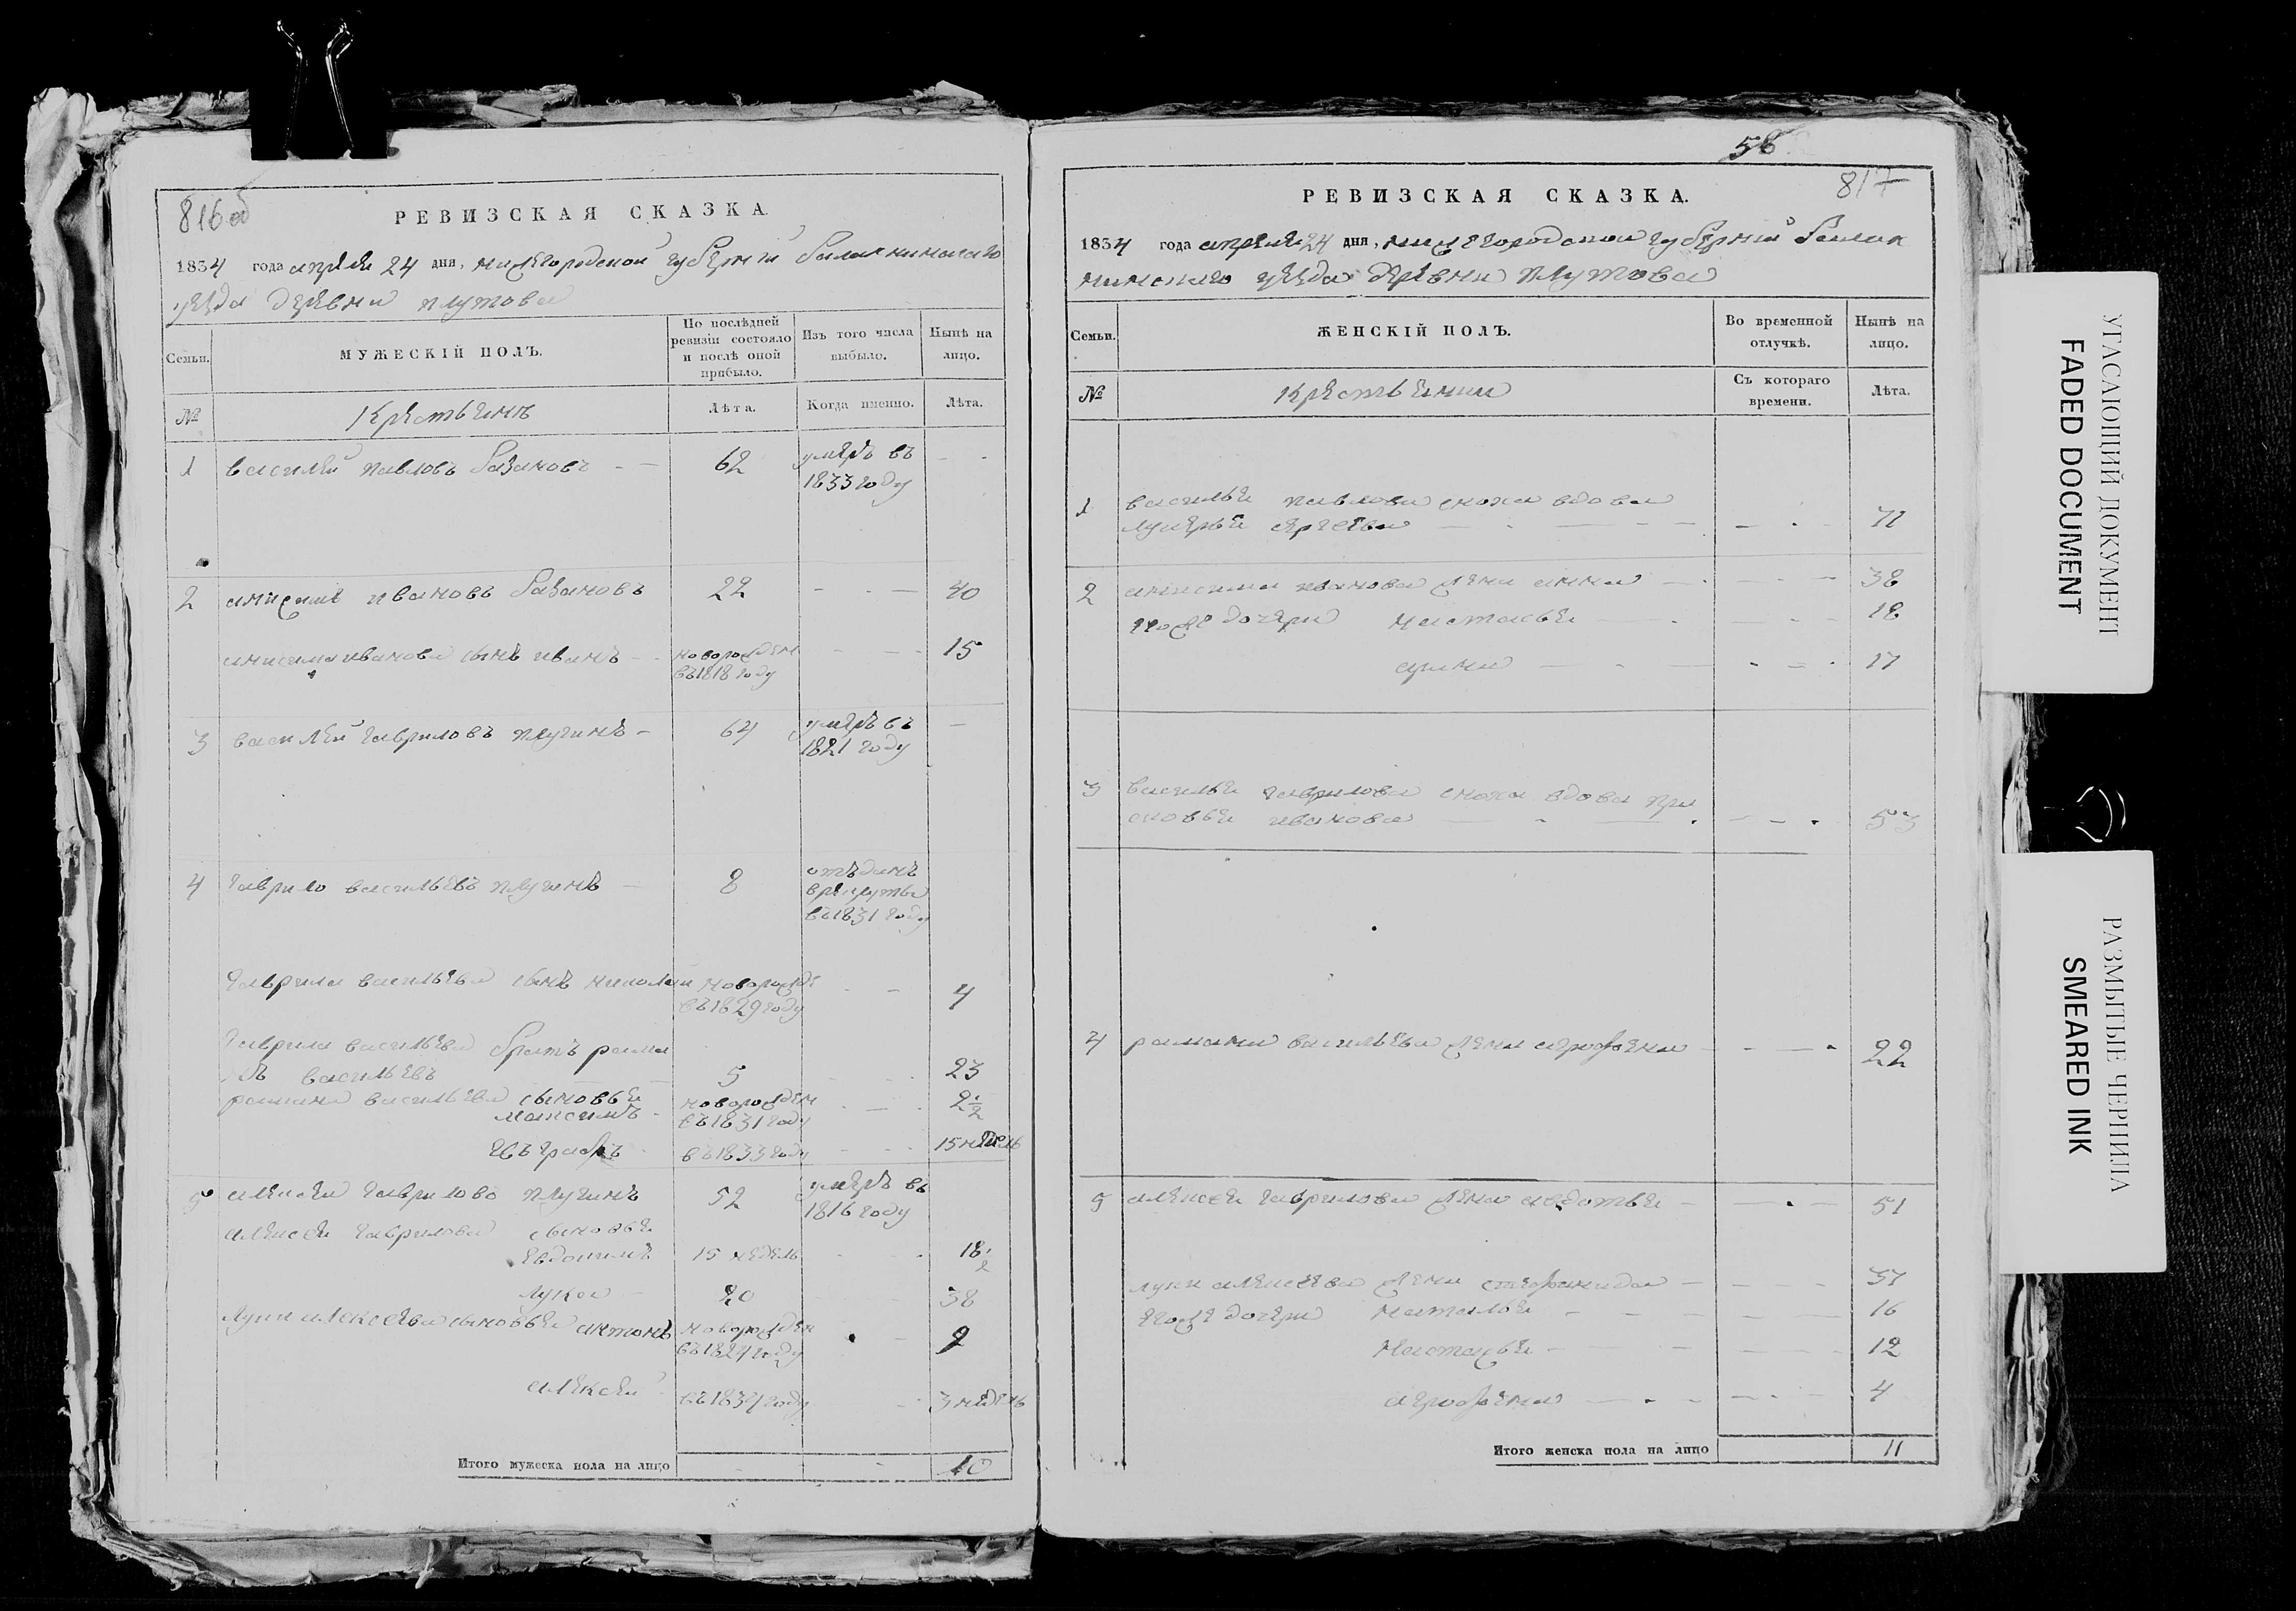 816 об
РЕВИЗСКАЯ СКАЗКА.
1834 года апреля 24 дня, нижегородской губернiй балахнинскаго
уезда деревни плутова
Семьи.
МУЖЕСКIЙ ПОЛЪ.
По послѣдней ревизiи состояло и послѣ оной прибыло.
Изъ того числа выбыло.
Нынѣ на лицо.
№
Крестьянъ
Лѣта.
Когда именно.
Лѣта.
1 василей павловъ Разановъ 62 умеръ въ
1833 году
2 анисимъ ивановъ Разановъ 22 40
анисима иванова сынъ иванъ новорожден 15
въ 1818 году
3 василей гавриловъ плугинъ 64 умеръ въ
1821 году
4 гаврило васильевъ плугинъ 8 отъданъ
в рекруты
въ 1831 году
гаврила васильева сынъ николай новорожде 4
въ 1829 году
гаврила васильева братъ рама
нъ васильевъ 5 23
рамана васильева сыновья новорожден 2 1/2
максимъ въ 1831 году
въ 1833 году 15 недель
5 алексей гаврилово плугинъ 52 умеръ въ
1816 году
алексея гаврилова сыновья
Евдокимъ 15 недель 18 1/2
лука 20 38
луки алексеева сыновья антонъ новорожден 9
въ 1824 году
алексей въ 1834 году 3 недель
Итого мужеска пола на лицо 10
58
817
РЕВИЗСКАЯ СКАЗКА.
1834 года апреля 24 дня, нижегородской губернiй балах
нинскаго уезда деревни плутова
Семьи.
ЖЕНСКIЙ ПОЛЪ.
Во временной отлучкѣ.
Нынѣ на лицо.
№
Крестьянки
Съ котораго времени.
Лѣта.
1 василья павлова жона вдова
лукерья сергеева 71
2 анисима иванова жена анна 38
ево же дочери настасья 18
17
3 василья гаврилова жона вдова пра
сковья иванова 53
4 рамана васильева жена агрофена 22
5 алексея гаврилова жена авдотья 51
луки алексеева жена стефанида 37
ево же дочери наталья 16
настасья 12
агрофена 4
Итого женска пола на лицо 11
УГАСАЮЩИЙ ДОКУМЕНТ
FADED DOCUMENT
РАЗМЫТЫЕ ЧЕРНИЛА
SMEARED INK